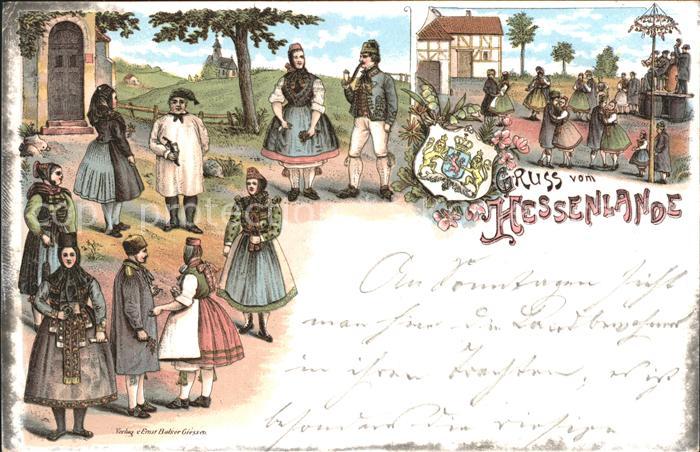 Gruss vom
Hessenlande
An Sonntagen sieht
man hier die Landbewohner
in ihren Trachten, es ist
besonders die
Verlag v. Ernst Balser Giessen.